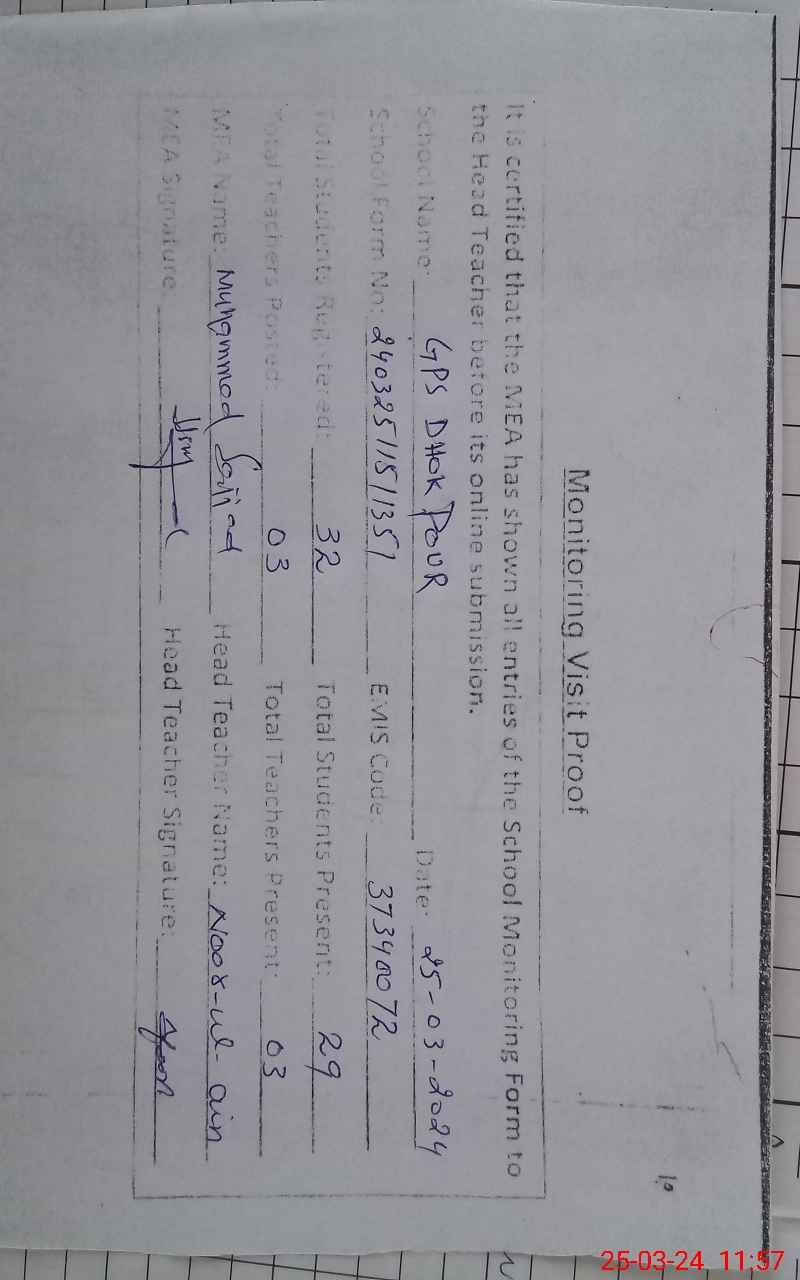 Monitoring Visit Proof
It is certified that the MEA has shown all entries of the School Monitoring Form to
the Head Teacher before its online submission.
School Name: GPS DHOK POUR Date: 25-03-2024
School Form No: 24032511511351 EMIS Code: 37340072
Total Students Registered: 32 Total Students Present: 29
Total Teachers Posted: 03 Total Teachers Present: 03
MEA Name: Muhammad Sajjad Head Teacher Name: Noor-ul-ain
MEA Signature: Head Teacher Signature:
25-03-24 11:57